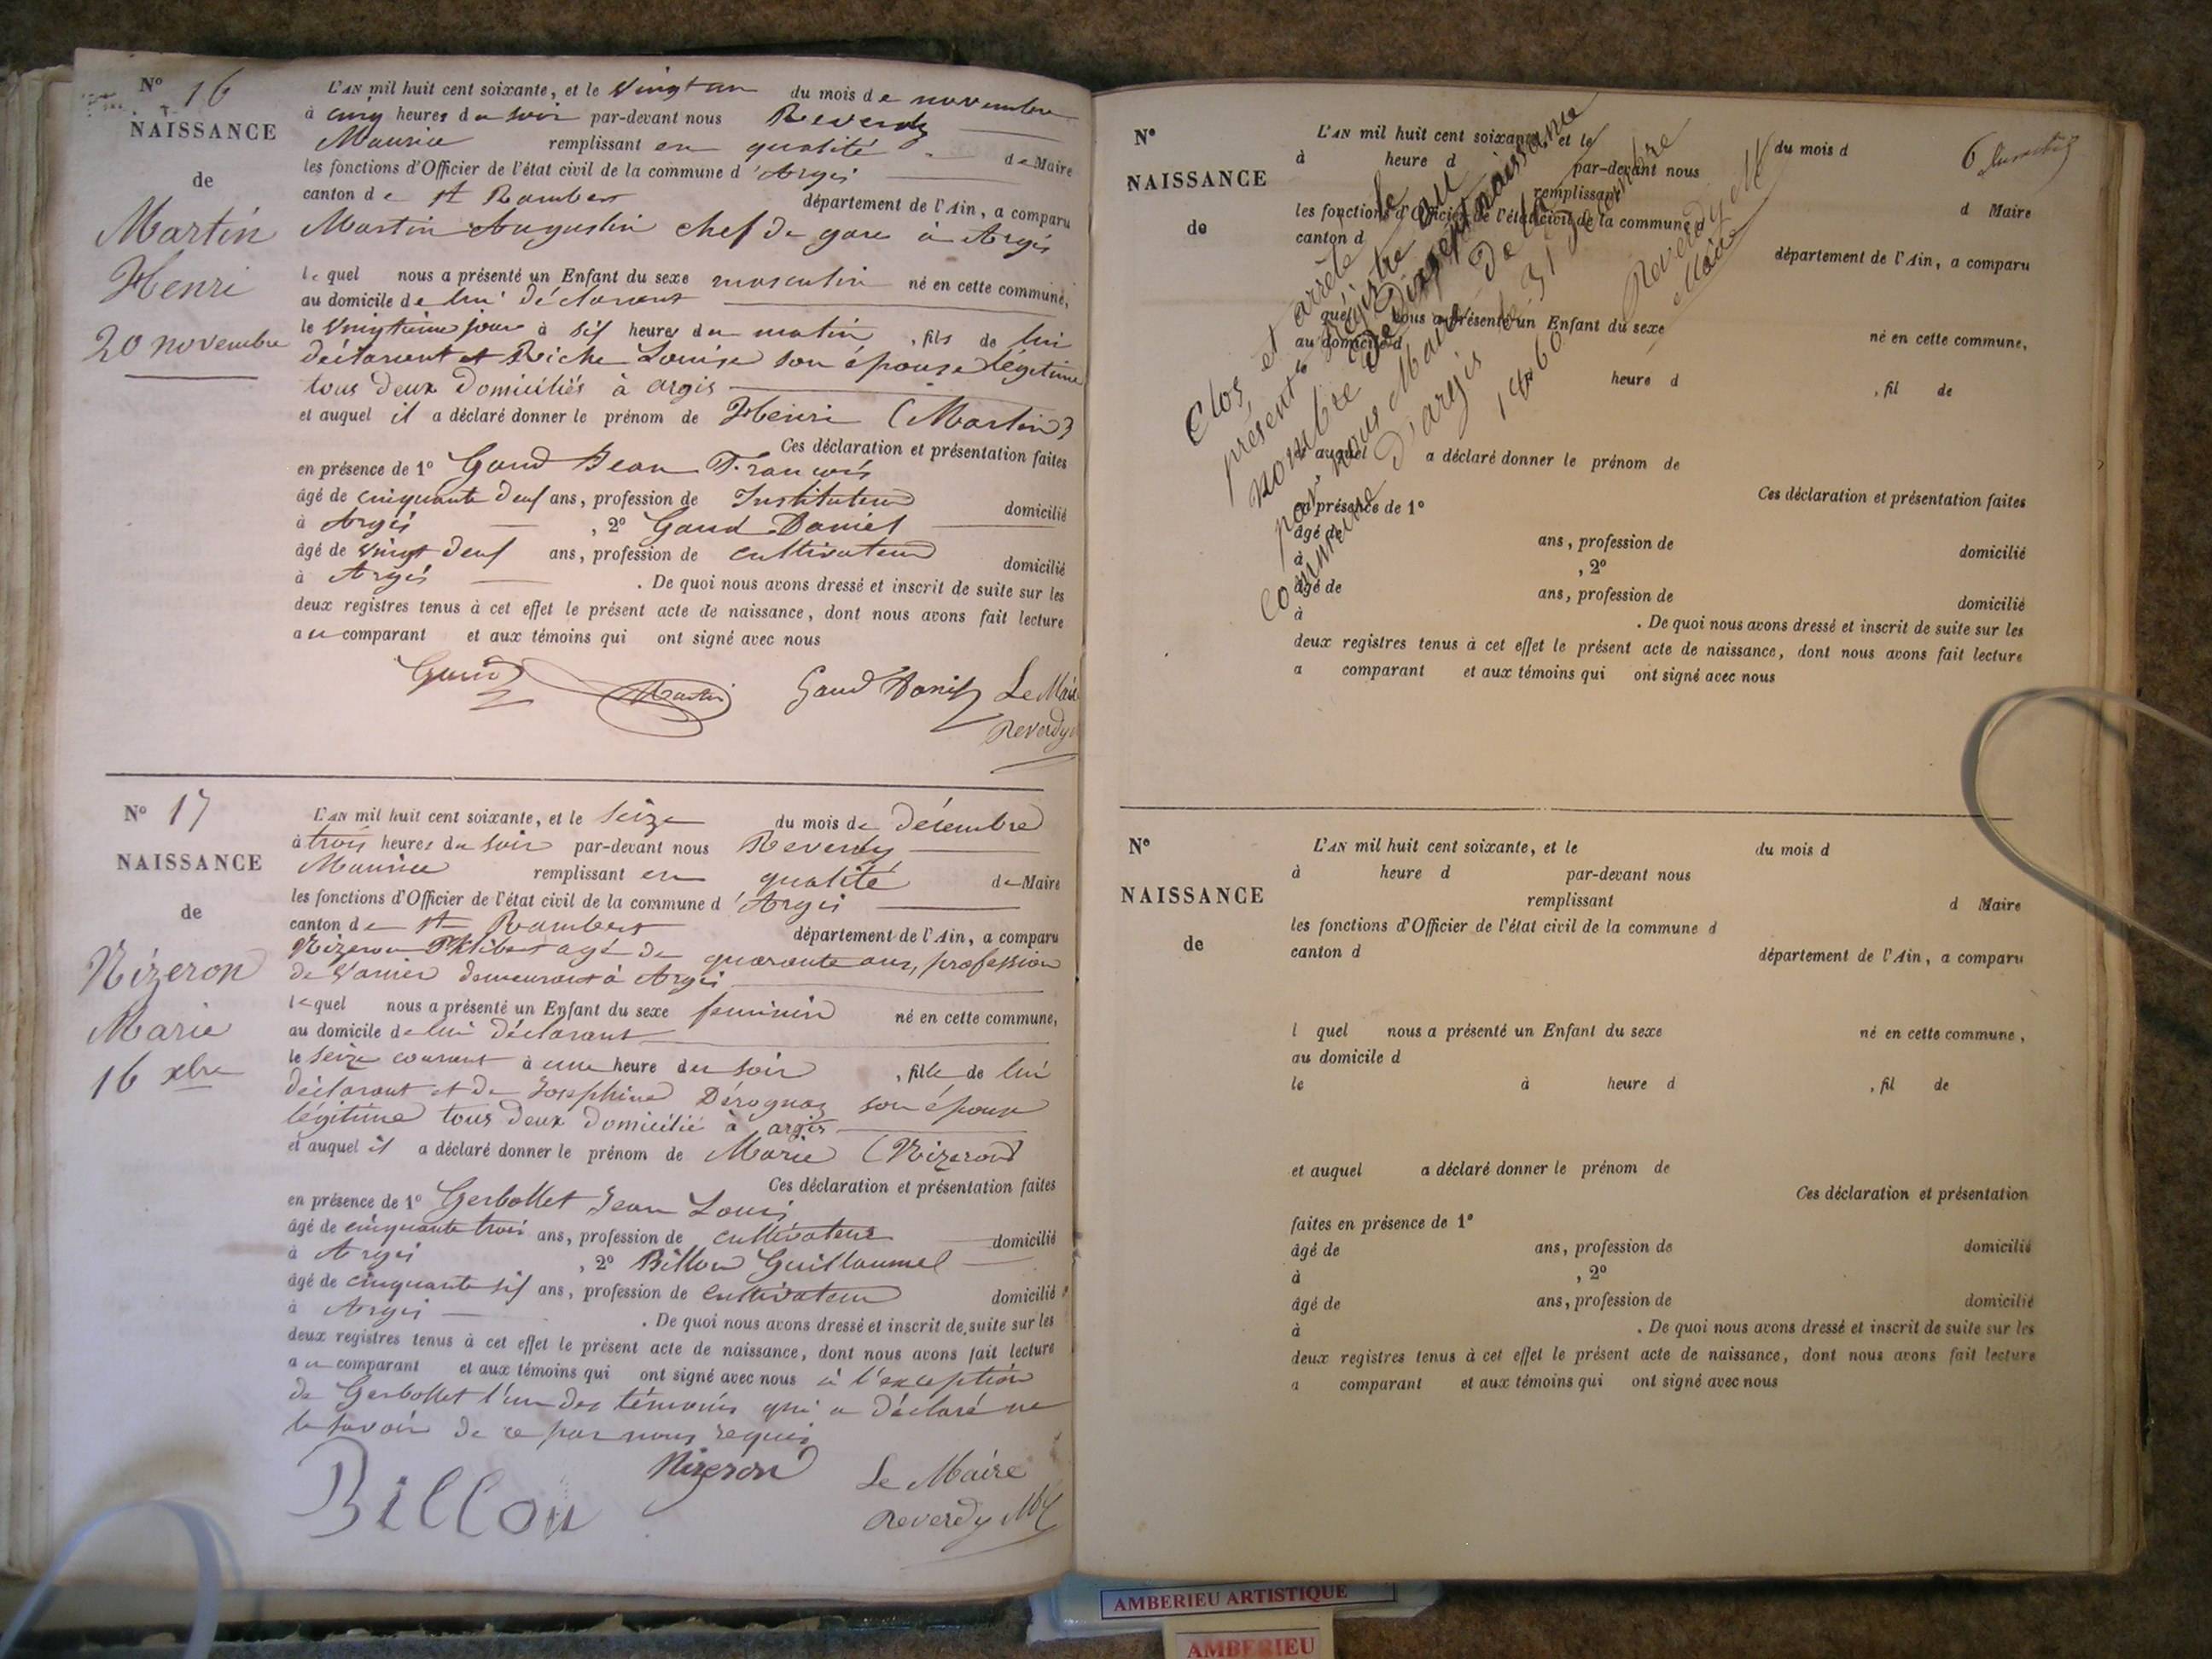 N° 16
NAISSANCE
de
Martin
Henri
20 novembre
L'AN mil huit cent soixante, et le vingt un du mois de novembre
à cinq heures du soir par-devant nous Reverdy
Maurice remplissant en qualité de Maire
les fonctions d'Officier de l'état civil de la commune d'Argis
canton de St Rambert département de l'Ain, a comparu
Martin Augustin chef de gare à Argis
lequel nous a présenté un Enfant du sexe masculin né en cette commune,
au domicile de lui déclarant
le vingtième jour à six heures du matin, fils de lui
déclarant et Riche Louise son épouse légitime
tous deux domiciliés à argis
et auquel il a déclaré donner le prénom de Henri (Martin)
Ces déclaration et présentation faites
en présence de 1° Gaud Jean François
âgé de cinquante deux ans, profession de Instituteur domicilié
à Argis, 2° Gaud Daniel
âgé de vingt deux ans, profession de cultivateur domicilié
à Argis. De quoi nous avons dressé et inscrit de suite sur les
deux registres tenus à cet effet le présent acte de naissance, dont nous avons fait lecture
au comparant et aux témoins qui ont signé avec nous
Gaud Martin Gaud Le Maire
Reverdy
N° 17
NAISSANCE
de
Nizeron
Marie
16 xbre
L'AN mil huit cent soixante, et le seize du mois de décembre
à trois heures du soir par-devant nous Reverdy
Maurice remplissant en qualité de Maire
les fonctions d'Officier de l'état civil de la commune d'Argis
canton de St Rambert département de l'Ain, a comparu
Nizeron Philibert agé de quarante ans, profession
de demeurant à Argis
lequel nous a présenté un Enfant du sexe feminin né en cette commune,
au domicile de lui déclarant
le seize courant à une heure du soir, fille de lui
déclarant et de Josephine Dérognaz son épouse
légitime tous deux domicilié à argis
et auquel il a déclaré donner le prénom de Marie (Nizeron)
Ces déclaration et présentation faites
en présence de 1° Gerbollet Jean Louis
âgé de cinquante trois ans, profession de cultivateur domicilié
à Argis, 2° Billon Guillaume
âgé de cinquante six ans, profession de cultivateur domicilié
à Argis. De quoi nous avons dressé et inscrit de suite sur les
deux registres tenus à cet effet le présent acte de naissance, dont nous avons fait lecture
au comparant et aux témoins qui ont signé avec nous à l'exception
de Gerbollet l'un des témoins qui a déclaré ne
le savoir de ce par nous requis
Billon Nizeron Le Maire
Reverdy M
N°
NAISSANCE
de
L'AN mil huit cent soixante, et le du mois d
à heure d par-devant nous
remplissant d Maire
les fonctions d'Officier de l'état civil de la commune d
canton d département de l'Ain, a comparu
quel nous a présenté un Enfant du sexe né en cette commune,
au domicile d
heure d , fil de
et auquel a déclaré donner le prénom de
Ces déclaration et présentation faites
en présence de 1°
âgé de ans, profession de domicilié
à , 2°
âgé de ans, profession de domicilié
à . De quoi nous avons dressé et inscrit de suite sur les
deux registres tenus à cet effet le présent acte de naissance, dont nous avons fait lecture
a comparant et aux témoins qui ont signé avec nous
Clos, et arrêté le
présent registre au
nombre de dix sept naissance
par nous Maire de la
commune d'argis le 31 décembre
1860
Reverdy M
Maire
N°
NAISSANCE
de
L'AN mil huit cent soixante, et le du mois d
à heure d par-devant nous
remplissant d Maire
les fonctions d'Officier de l'état civil de la commune d
canton d département de l'Ain, a comparu
l quel nous a présenté un Enfant du sexe né en cette commune,
au domicile d
le à heure d , fil de
et auquel a déclaré donner le prénom de
Ces déclaration et présentation
faites en présence de 1°
âgé de ans, profession de domicilié
à , 2°
âgé de ans, profession de domicilié
à . De quoi nous avons dressé et inscrit de suite sur les
deux registres tenus à cet effet le présent acte de naissance, dont nous avons fait lecture
a comparant et aux témoins qui ont signé avec nous
AMBERIEU ARTISTIQUE
AMBERIEU